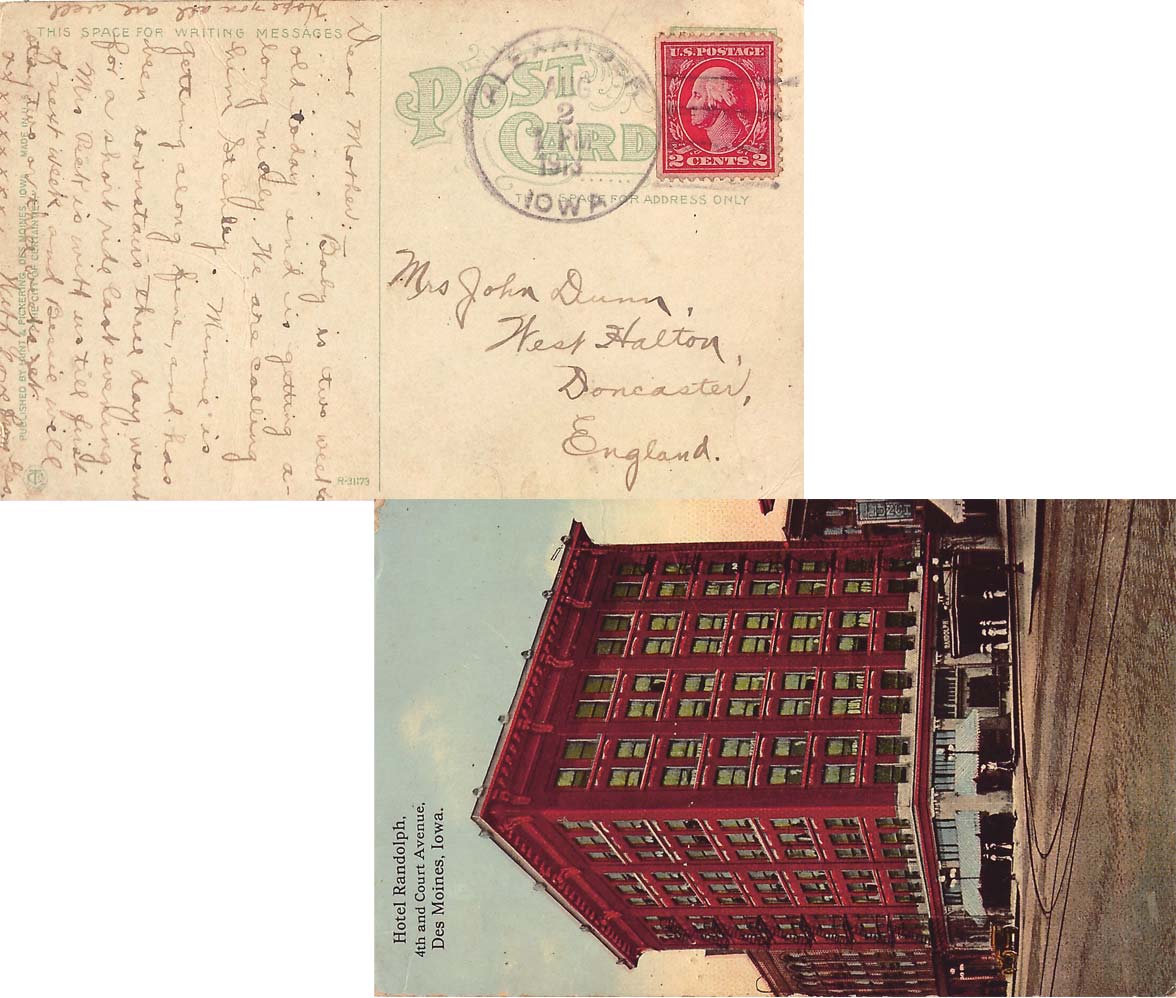 Hope you all are well.
THIS SPACE FOR WRITING MESSAGES
Dear Mother:-
Baby is two weeks
old today and is getting a-
long nicely. We are calling
him Stanley. Minnie is
getting along fine, and has
been downstairs three day, went
for a short ride last evening.
Mrs Riet is with us till first
of next week and Bessie will
stay two or
xxxxxx With love from
PUBLISHED BY HUNT & PICKERING, DES MOINES, IOWA. MADE IN U.S.A.
THE CITY OF CERTAINTIES
R-31173
POST
CARD
THIS SPACE FOR ADDRESS ONLY
ALEXANDER
AUG
2
1 PM
1913
IOWA
U.S. POSTAGE
2 CENTS 2
Mrs John Dunn,
West Halton,
Doncaster,
England.
Hotel Randolph,
4th and Court Avenue,
Des Moines, Iowa.
RANDOLPH